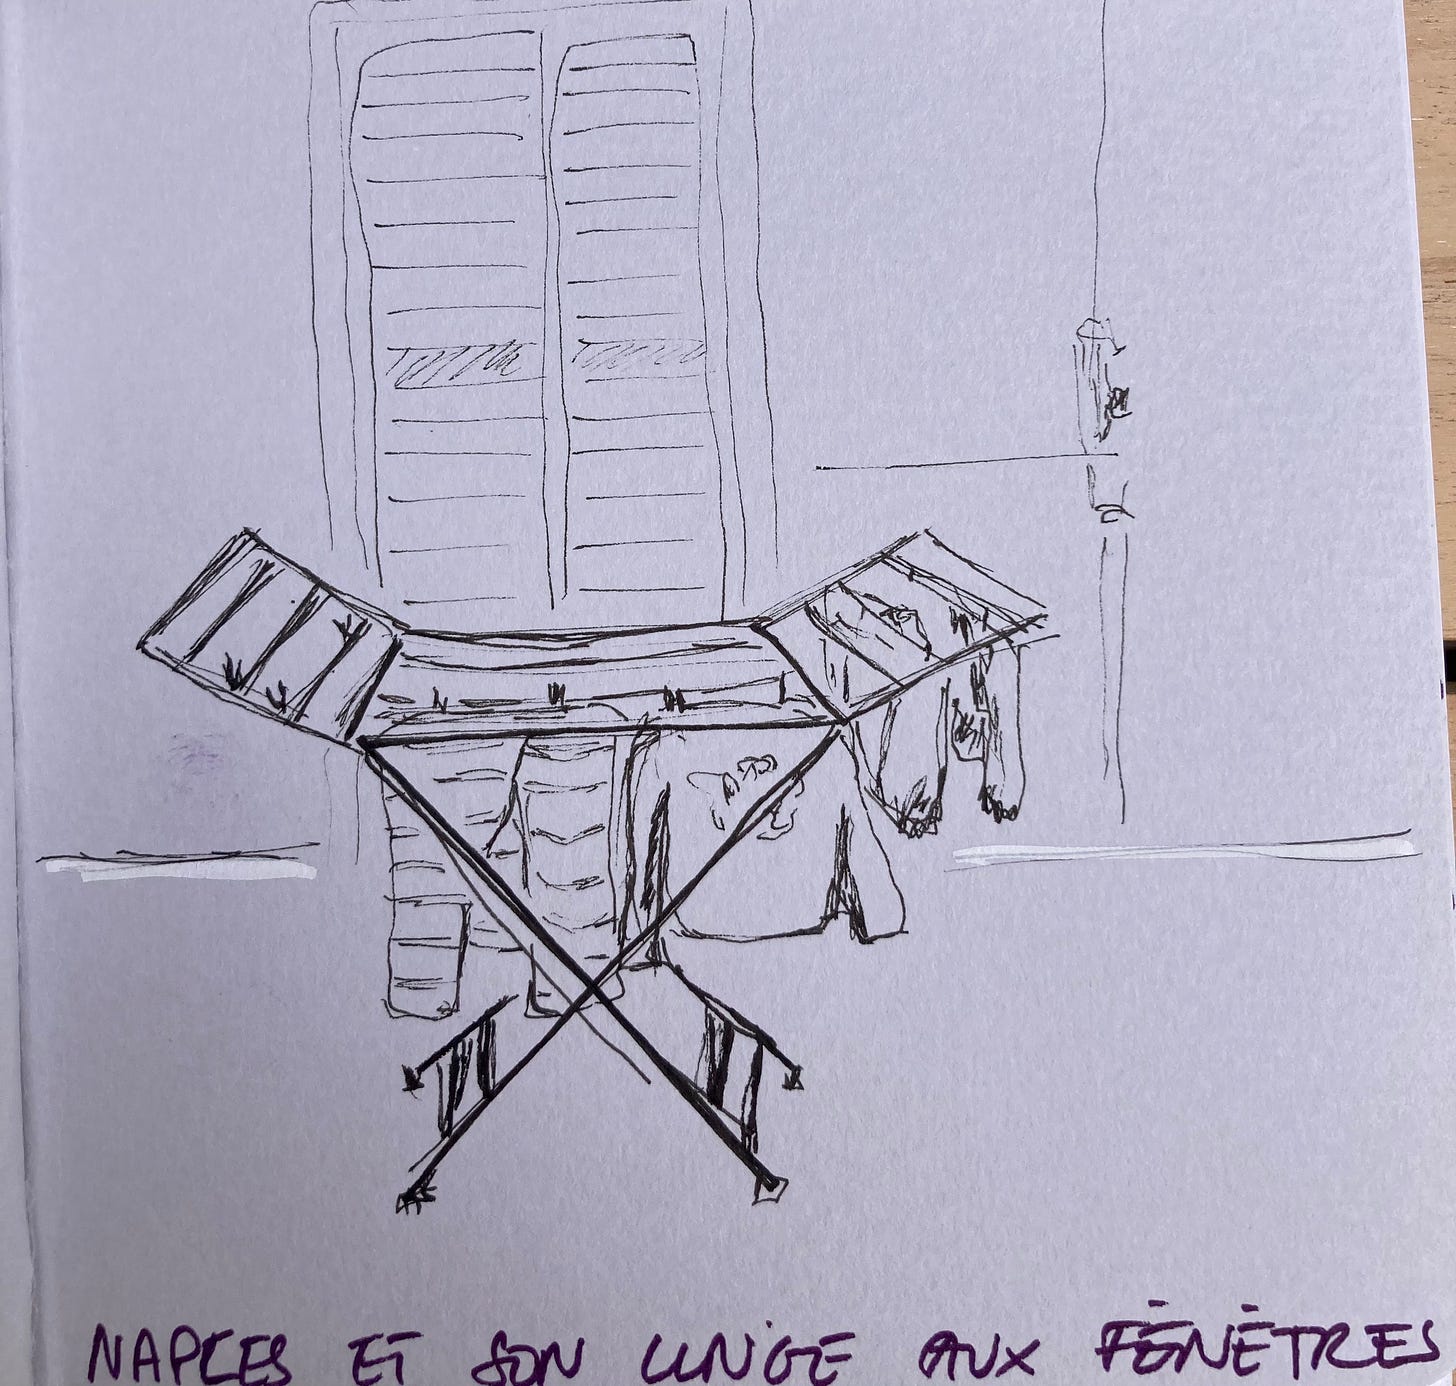 NAPLES ET SON LINGE AUX FÉNÊTRES